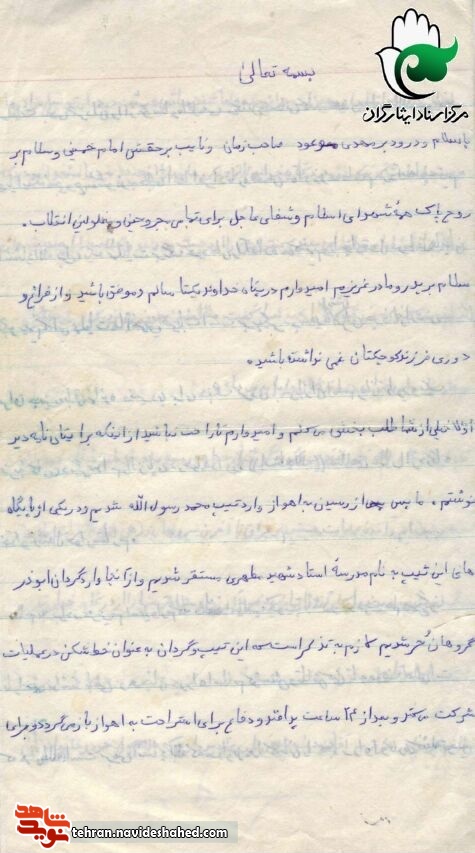 مرکز اسناد ایثارگران
بسمه تعالی
با سلام و درود بر مهدی موعود صاحب زمان و نایب برحقش امام خمینی و سلام بر
روح پاک همه شهدای اسلام و شفای عاجل برای تمامی مجروحین و معلولین انقلاب.
سلام بر پدر و مادر عزیزم امیدوارم در پناه خداوند یکتا سالم و موفق باشید و از فراغ و
دوری فرزند کوچکتان غمی نداشته باشید.
اولا خیلی از شما طلب بخشش می‌کنم و امیدوارم ناراحت نباشید از اینکه برایتان نامه دیر
نوشتم. ما پس از رسیدن به اهواز وارد تیپ محمد رسول الله شدیم و در یکی از پایگاه
های این تیپ به نام مدرسهٔ استاد شهید مطهری مستقر شدیم و از آنجا وارد گردان ابوذر
گروهان حُر شدیم لازم به تذکر است که این تیپ و گردان به عنوان خط شکن در عملیات
شرکت می‌کند و بعد از ۲۴ ساعت پدافند و دفاع برای استراحت به اهواز باز می‌گردد و برای
شاهد
نوید
tehran.navideshahed.com